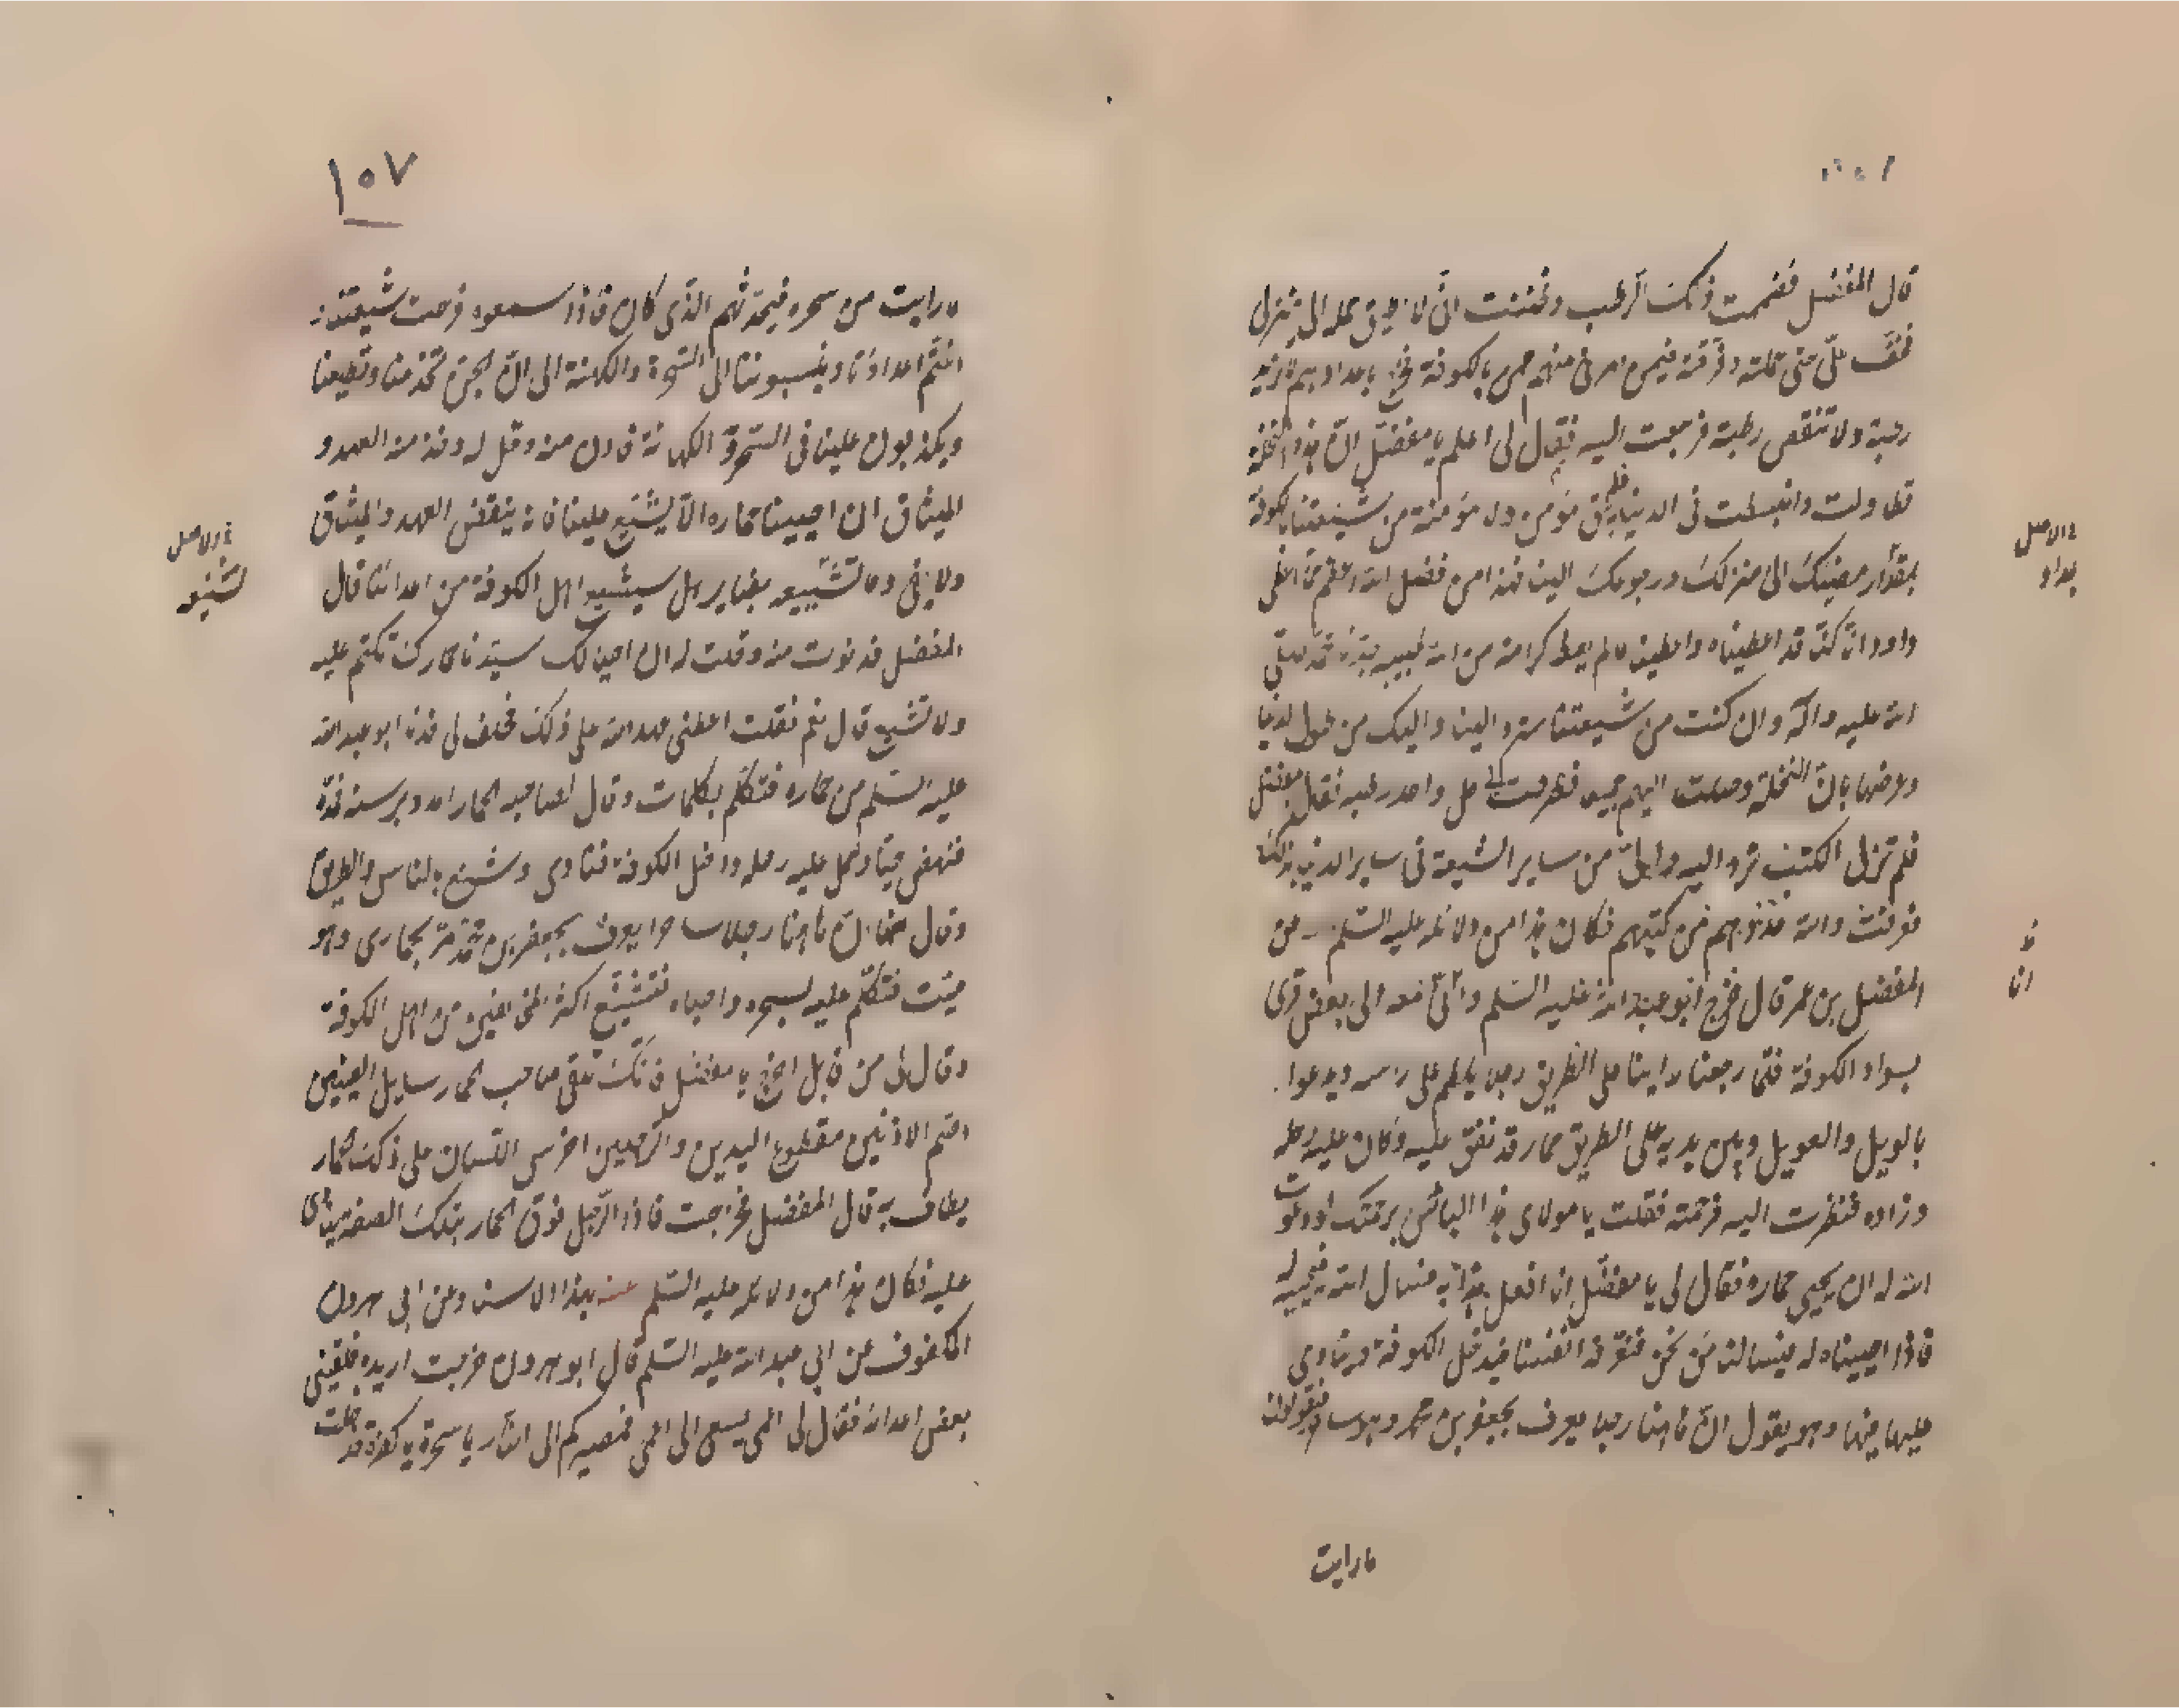 قال المفضل فضممت ذلك الرطب وظننت انى لا اطيق حمله الى منزلى
فخف علىّ حتى حملته وفرقته فيمن امرنى منهم بالكوفة فخرج باعدادهم لا تزيد
رطبة ولا تنقص رطبة فرجعت اليه فقال لى اعلم يا مفضل انّ هذه النخلة
تطاولت وانبسطت فى الدنيا فلم يبق مؤمن ولا مؤمنة من شيعتنا بالكوفة
بمقدار مضيك الى منزلك ورجوعك الينا فهذا من فضل الله اعظم مما اعطى
داود انّا كنّا قد اعطيناه واعطينا ما لم يعط كرامة من الله لحبيبه جدّنا محمّد صلى
الله عليه وآله وان كنت من شيعتنا سترد الينا واليك من طول الدنيا
وعرضها بان النخلة وصلت اليهم جميعا فطرحت الى كل واحد رطبة فقال المفضل
فلم تزل الكتب ترد اليه والىّ من ساير الشيعة فى ساير الدنيا بذلك
فعرفت والله عددهم من كتبهم فكان هذا من دلائله عليه السّلم وعن
المفضل بن عمر قال خرج ابو عبد الله عليه السّلم وانّى معه الى بعض قرى
بسواد الكوفة فلمّا رجعنا راينا على الطريق رجلا يلطم على راسه ويدعوا
بالويل والعويل وبين يديه على الطريق حمار قد نفق عليه وكان عليه رحله
وزاده فنظرت اليه فرحمته فقلت يا مولاى هذا البائس برحمتك لو دعوت
الله له ان يحيى حماره فقال لى يا مفضّل انا افعل هذا به فنسال الله فيحييه له
فاذا احييناه له فيسالنا من نحن فنعرفه انفسنا فيدخل الكوفة فينادى
عليها فيها وهو يقول انّ هاهنا رجلا يعرف بجعفر بن محمد وهو ساحر فيقولون
ما رايت
١٠٧
ما رايت من سحره فيحدثهم الذى كان فاذا سمعوه فرحت شيعتنا
اغتمّ اعداؤنا وينسبوننا الى السحرة والكهنة الى انّ الجن تحدثنا وتطيعنا
ويكذبون علينا فى السحر والكهانة فادن منه وقل له وخذ منه العهد و
الميثاق ان احيينا حماره الّا يشنّع علينا فانه ينقض العهد والميثاق
ولا يفى وما تشنيعه بضاير بل سيشيع اهل الكوفة من اعدائنا قال
المفضل فدنوت منه وقلت له ان احيى لك سيّدنا حمارك تكتم عليه
ولا تشنع قال نعم فقلت اعطنى عهد الله على ذلك فحلف لى فدنا ابو عبد الله
عليه السّلم من حماره فتكلّم بكلمات وقال لصاحب الحمار
فنهض حيّا وحمل عليه رحله ودخل الكوفة فنادى وشنع بالناس والطريق
وقال انّ هاهنا رجلا ساحرا يعرف بجعفر بن محمّد مرّ بحمارى وهو
ميّت فتكلّم عليه بسحره واحياه فتشنّع اكثر المخالفين من اهل الكوفة
وقال لى من قابل اخرج يا مفضل فانّك تلقى صاحب الحمار سايل العينين
اصم الاذنين مقطوع اليدين والرجلين اخرس اللسان على ذلك الحمار
يطاف به قال المفضل فخرجت فاذا الرّجل فوق الحمار بتلك الصفة ينادى
عليه فكان هذا من دلائله عليه السّلم عنه بهذا الاسناد وعن ابى هرون
المكفوف عن ابى عبد الله عليه السّلم قال ابو هرون خرجت اريده فلقينى
بعض اعدائه فقال لى اعمى يسعى الى اعمى فمصيركم الى النّار يا سحرة يا كفرة فدخلت
فى الاصل
بعداد
خ
انا
فى الاصل
تشنيعه